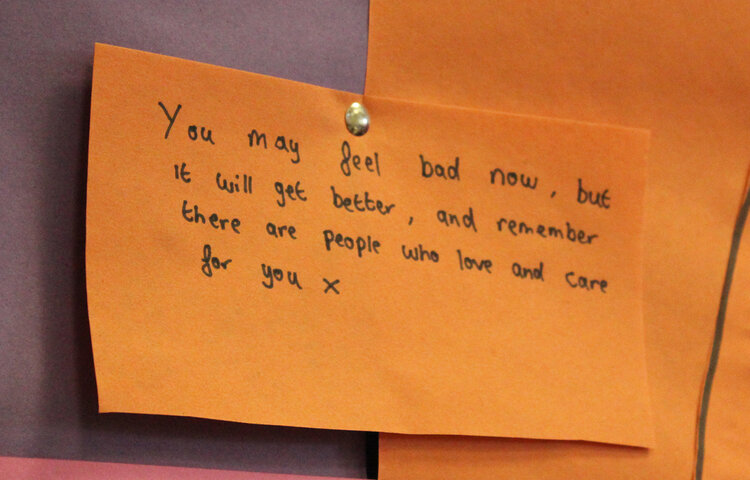 You may feel bad now, but
it will get better, and remember
there are people who love and care
for you x